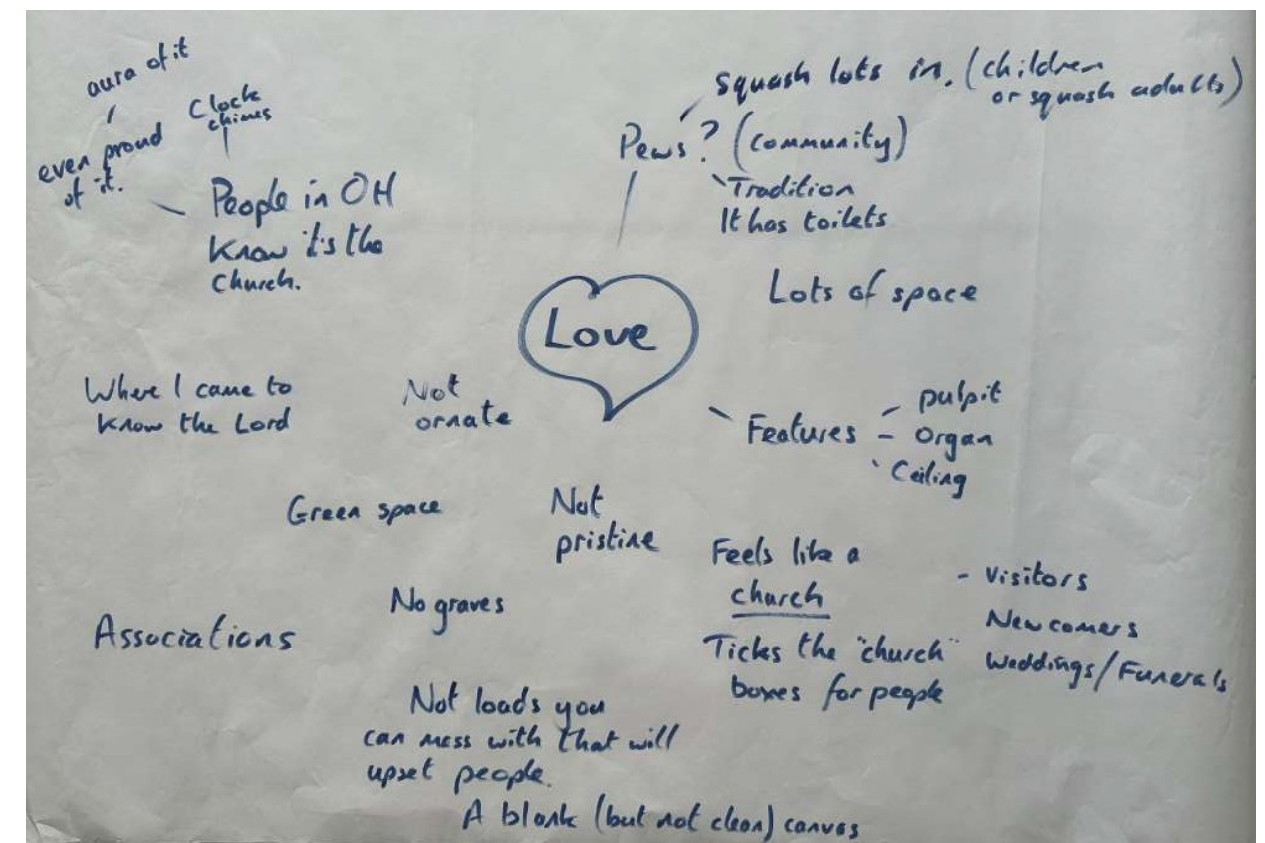 aura of it
even proud
of it.
Clock
chimes
People in OH
Know it's the
Church.
Squash lots in. (children
or squash adults)
Pews? (Community)
Tradition
It has toilets
Lots of space
Love
Where I came to
Know the Lord
Not
ornate
Features
- pulpit
- Organ
Ceiling
Green space
Not
pristine
Feels like a
church
Ticks the "church"
boxes for people
- Visitors
Newcomers
Weddings/Funerals
No graves
Associations
Not loads you
can mess with that will
upset people.
A blank (but not clean) canvas